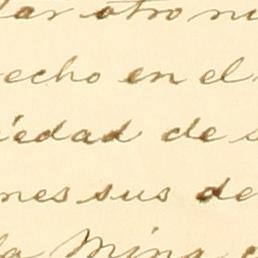 dar otro nu
echo en el
iedad de s
nes sus de
la Mina